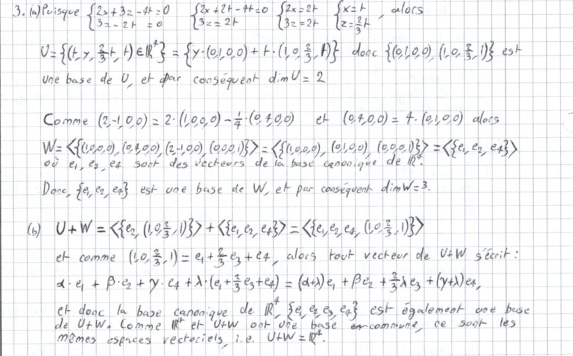 3. (a) Puisque {2x+3z-4t=0, 3z-2t=0 {2x+2t-4t=0, 3z=2t {2x=2t, 3z=2t {x=t, z=2/3 t, alors
U={(t,y,2/3 t,t)∈ℝ⁴}={y·(0,1,0,0)+t·(1,0,2/3,1)} donc {(0,1,0,0),(1,0,2/3,1)} est
une base de U, et par conséquent dim U=2
Comme (2,-1,0,0)=2·(1,0,0,0)-1/4·(0,4,0,0) et (0,4,0,0)=4·(0,1,0,0) alors
W=<{(1,0,0,0),(0,4,0,0),(2,-1,0,0),(0,0,0,1)}>=<{(1,0,0,0),(0,1,0,0),(0,0,0,1)}>=<{e₁,e₂,e₄}>
où e₁, e₂, e₄ sont des vecteurs de la base canonique de ℝ⁴.
Donc, {e₁,e₂,e₄} est une base de W, et par conséquent dim W=3.
(b) U+W=<{e₂,(1,0,2/3,1)}>+<{e₁,e₂,e₄}>=<{e₁,e₂,e₄,(1,0,2/3,1)}>
et comme (1,0,2/3,1)=e₁+2/3 e₃+e₄, alors tout vecteur de U+W s'écrit :
α·e₁+β·e₂+γ·e₄+λ·(e₁+2/3 e₃+e₄)=(α+λ)e₁+βe₂+2/3 λe₃+(γ+λ)e₄,
et donc la base canonique de ℝ⁴, {e₁,e₂,e₃,e₄} est également une base
de U+W. Comme ℝ⁴ et U+W ont une base en commune, ce sont les
mêmes espaces vectoriels, i.e. U+W=ℝ⁴.